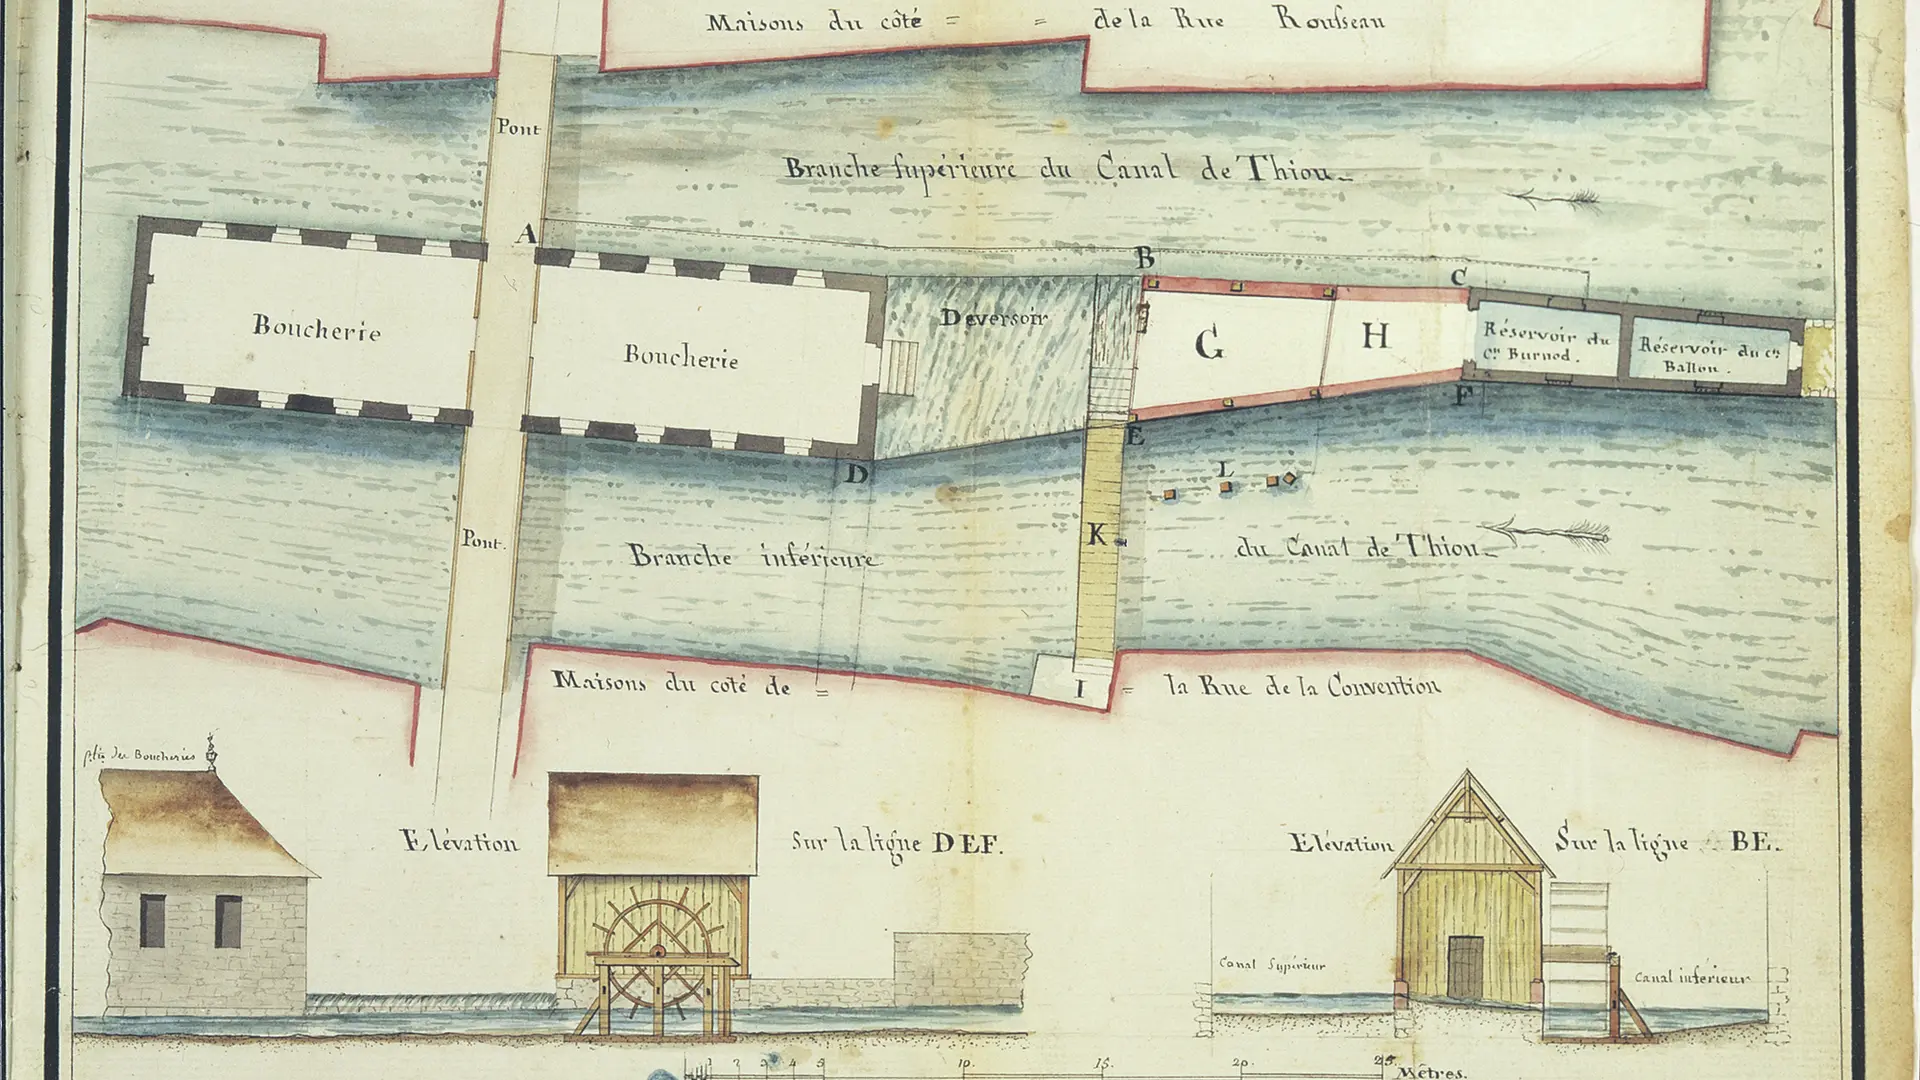 Maisons du côté = = de la Rue Rousseau
Pont
Branche supérieure du Canal de Thiou
A
B
C
Boucherie
Boucherie
Déversoir
G
H
Réservoir du
Cen Burnod.
Réservoir du cen
Ballon.
D
E
F
L
K
Pont.
Branche inférieure du Canal de Thiou
Maisons du coté de = I = la Rue de la Convention
des Boucheries
Elévation Sur la ligne DEF.
Elévation Sur la ligne BE.
Canal Supérieur
Canal inférieur
1 2 3 4 5 10. 15. 20. 25. Mètres.